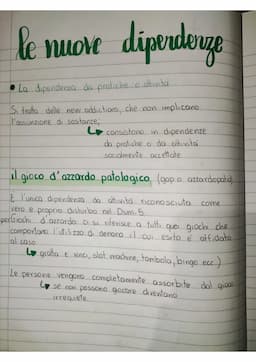 le nuove dipendenze
• La dipendenza da pratiche o attività
Si tratta delle new addictions, che non implicano
l'assunzione di sostanze;
↳ consistono in dipendenze
da pratiche o da attività
socialmente accettate
il gioco d'azzardo patologico (gap o azzardopatia)
È l'unica dipendenza da attività riconosciuta come
vero e proprio disturbo nel Dsm-5.
per giochi d'azzardo ci si riferisce a tutti quei giochi che
comportano l'utilizzo di denaro il cui esito è affidato
al caso
↳ gratta e vinci, slot machine, tombola, bingo ecc.)
Le persone vengono completamente assorbite dal gioco
↳ se non possono giocare diventano
irrequiete